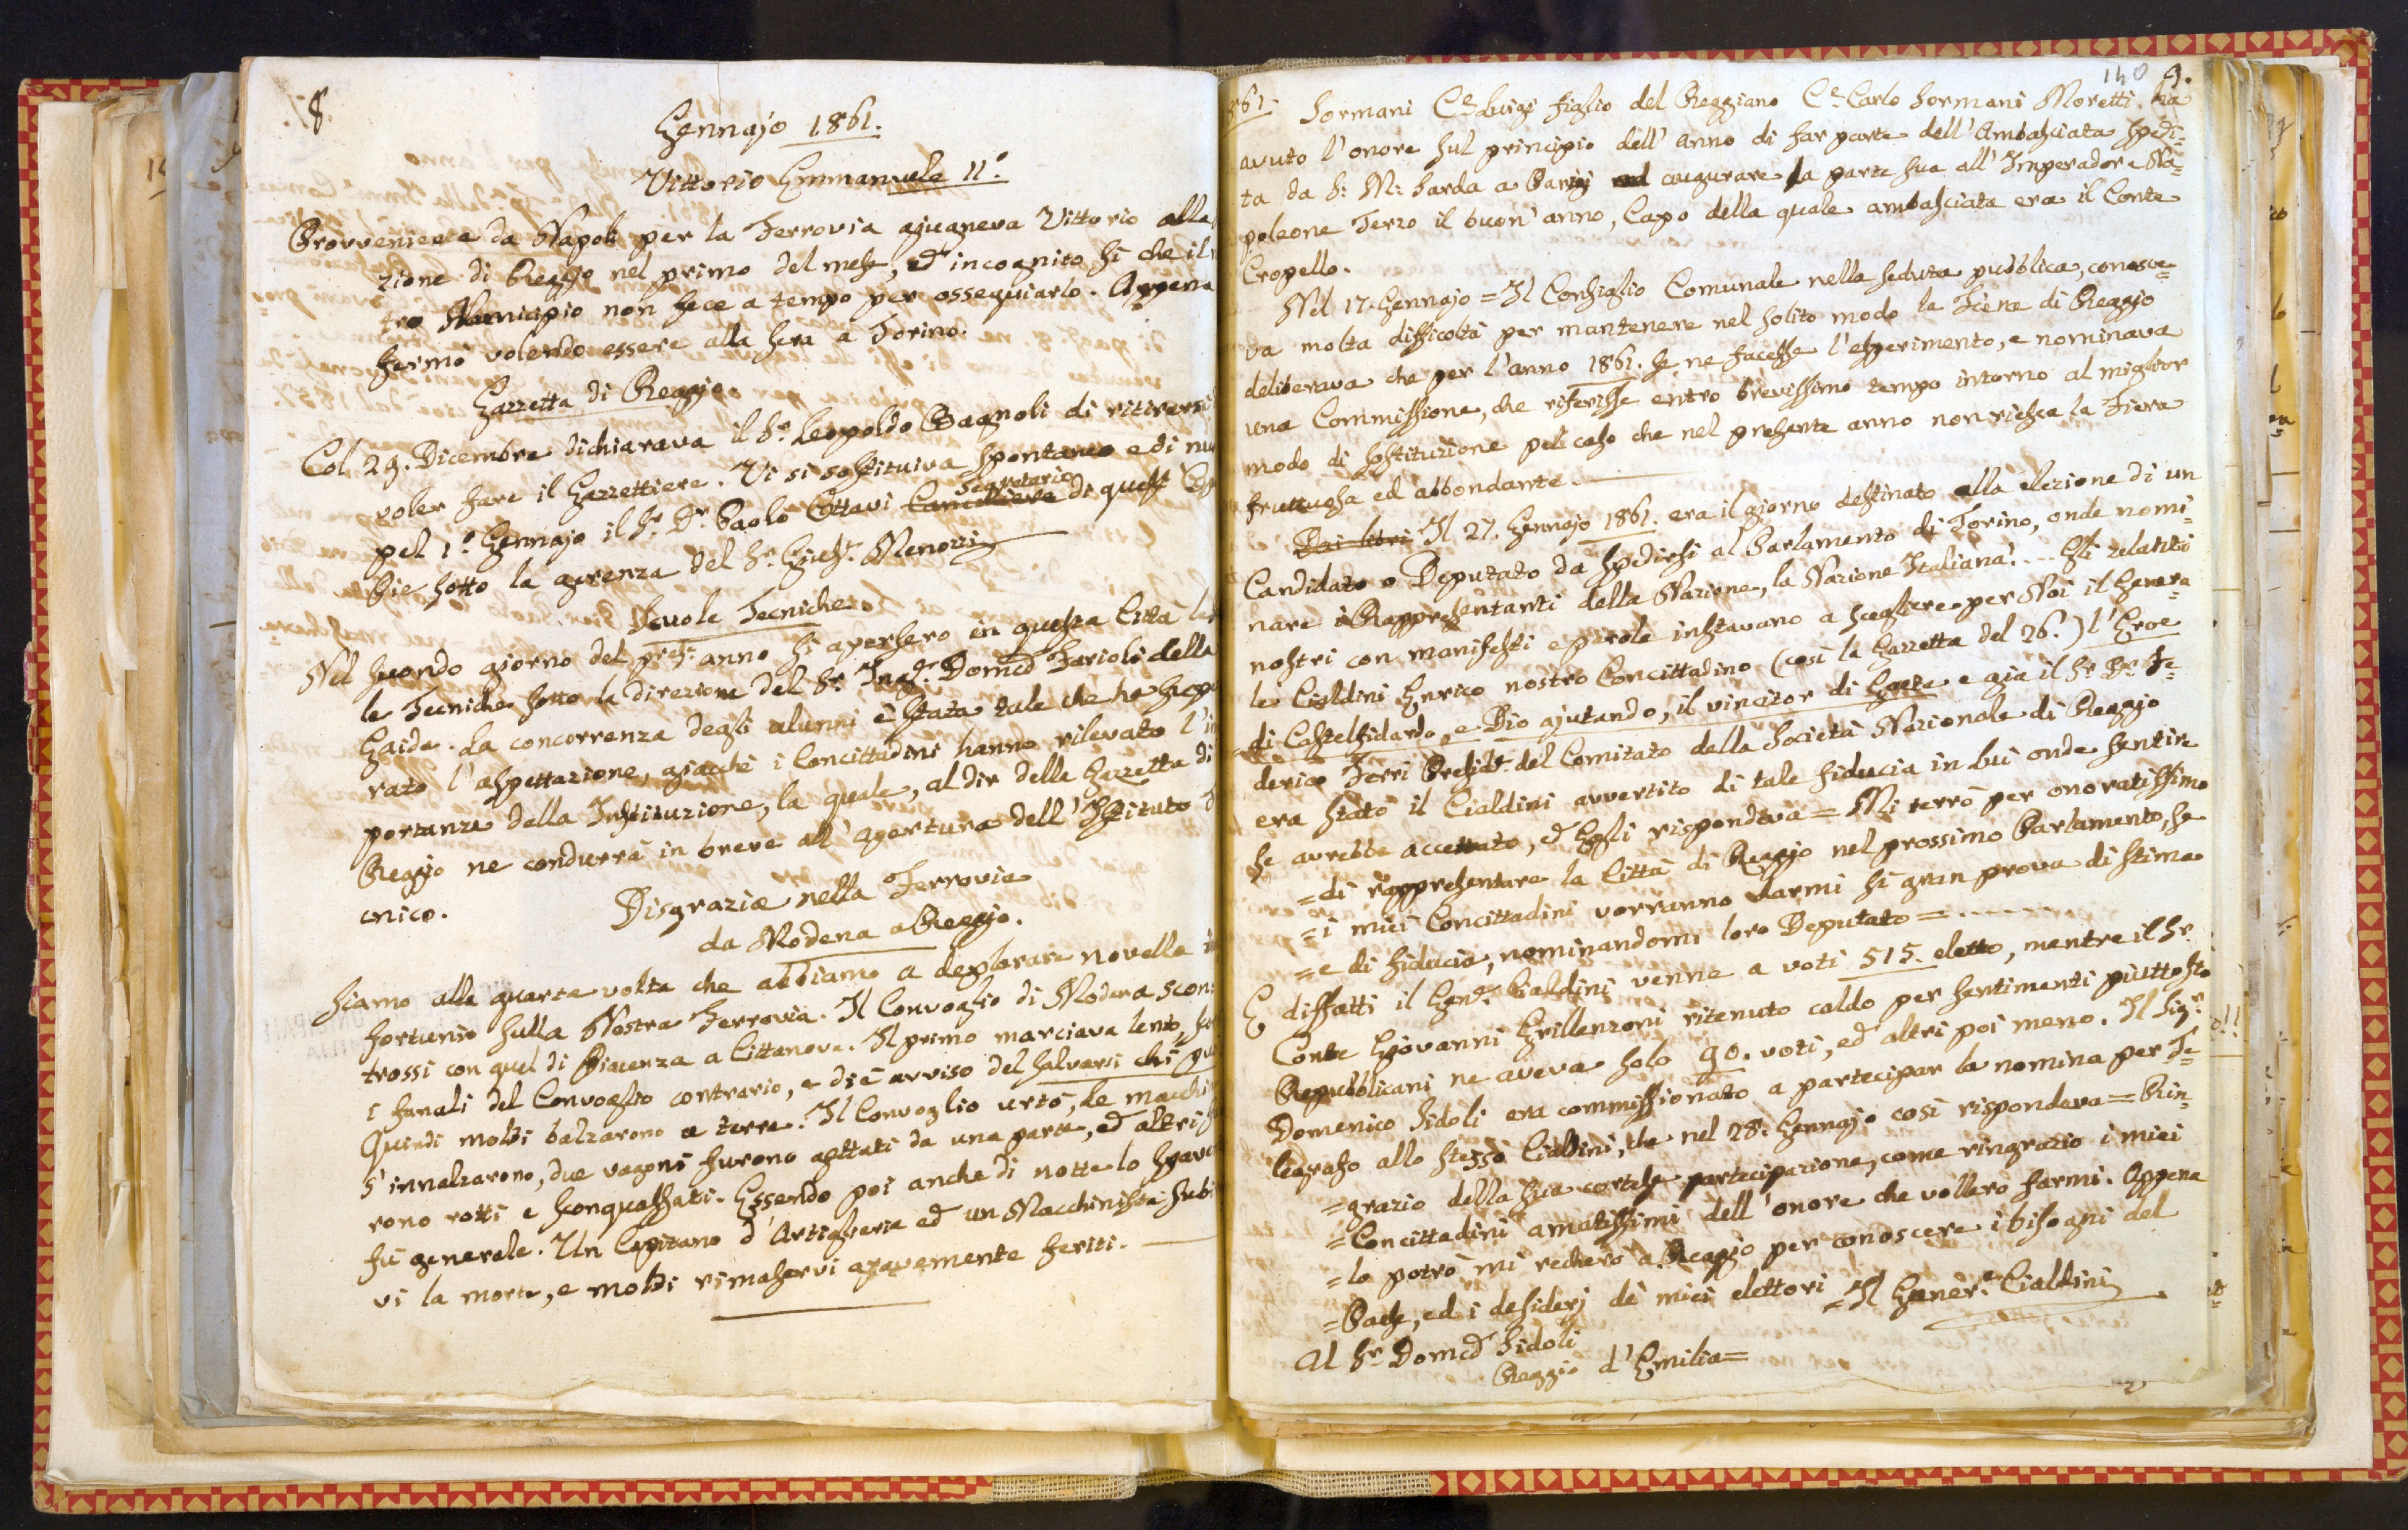 8.
Gennajo 1861.
Vittorio Emmanuele II.°
Provveniente da Napoli per la Ferrovia giugneva Vittorio alla
zione di Reggio nel primo del mese, ed incognito sì che il
tro Municipio non fece a tempo per ossequiarlo. Appena
fermò volendo essere alla sera a Torino.
Gazzetta di Reggio.
Col 29. Dicembre dichiarava il Sr. Leopoldo Bagnoli di ritirarsi
voler fare il Gazzettiere. Vi si sostituiva spontaneo e di
Segretario
pel 1.° Gennajo il Sr. Dr. Paolo Ottavi Cancelliere di quest
bie sotto la gerenza del Sr. Gius. Menozzi
Scuole Tecniche.
Nel secondo giorno del pres. anno si apersero in questa Città
le Tecniche sotto la direzione del Sr. Ing.r Domco Farioli della
Gaida. La concorrenza degli alunni è stata tale che ha
rato l'aspettazione, giacchè i Concittadini hanno rilevato l'
portanza della Instituzione, la quale, al dir della Gazzetta di
Reggio ne condurrà in breve all'apertura dell'Istituto
cnico.
Disgrazia nella Ferrovia
da Modena a Reggio.
Siamo alla quarta volta che abbiamo a deplorare novello
fortunio sulla Nostra Ferrovia. Il Convoglio di Modena scon
trossi con quel di Piacenza a Cittanova. Il primo marciava lento,
i fanali del Convoglio contrario, e diè avviso del salvarsi chi
Quindi molti balzarono a terra. Il Convoglio urtò, le macchi
s'innalzarono, due vagoni furono gettati da una parte, ed altri
rono rotti e sconquassati. Essendo poi anche di notte lo spave
fù generale. Un Capitano d'Artiglieria ed un Macchinista
vi la morte, e molti rimaservi gravemente feriti.
140 9.
861. Sormani Ce. Luigi figlio del Reggiano Ce. Carlo Sormani Moretti ha
avuto l'onore sul principio dell'anno di far parte dell'Ambasciata spedi=
ta da S: M: Sarda a Parigi augurare la parte sua all'Imperadore Na=
poleone Terzo il buon' anno, Capo della quale ambasciata era il Conte
Cropello.
Nel 17. Gennajo = Il Consiglio Comunale nella seduta pubblica, conosce=
va molta difficoltà per mantenere nel solito modo la Fiera di Reggio
deliberava che per l'anno 1861. se ne facesse l'esperimento, e nominava
una Commissione, che riferisse entro brevissimo tempo intorno al miglior
modo di sostituzione pel caso che nel presente anno non riesca la Fiera
fruttuosa ed abbondante.
Dai libri Il 27. Gennajo 1861. era il giorno destinato alla elezione di un
Candidato o Deputato da spedirsi al Parlamento di Torino, onde nomi=
nare i Rappresentanti della Nazione, la Nazione Italiana!.... Gli zelanti
nostri con manifesti e parole instavano a scegliere per Noi il Genera=
le Cialdini Enrico nostro Concittadino (così la Gazzetta del 26.) l'Eroe
di Castelfidardo, e Dio ajutando, il vincitor di Gaeta e già il Sr. Dr. Fe=
derico Ferri Presidt. del Comitato della Società Nazionale di Reggio
era stato il Cialdini avvertito di tale fiducia in Lui onde sentire
se avrebbe accettato, ed Egli rispondeva = Mi terrò per onoratissimo
= di rappresentare la Città di Reggio nel prossimo Parlamento, se
= i miei Concittadini vorranno darmi sì gran prova di stima
= e di fiducia, nominandomi loro Deputato = . . . . . .
E diffatti il Gen.e Cialdini venne a voti 515. eletto, mentre il Sr.
Conte Giovanni Grillenzoni ritenuto caldo per sentimenti piuttosto
Repubblicani ne aveva solo 90. voti, ed altri poi meno. Il Sig.r
Domenico Sidoli era commissionato a partecipar la nomina per Te=
legrafo allo stesso Cialdini, che nel 28. Gennajo così rispondeva = Rin=
= grazio della sua cortese partecipazione, come ringrazio i miei
= Concittadini amatissimi dell'onore che vollero farmi. Appena
= lo potrò mi recherò a Reggio per conoscere i bisogni del
= Paese, ed i desiderj de' miei elettori = Il Gener.e Cialdini
Al Sr. Domco Sidoli
Reggio d'Emilia =